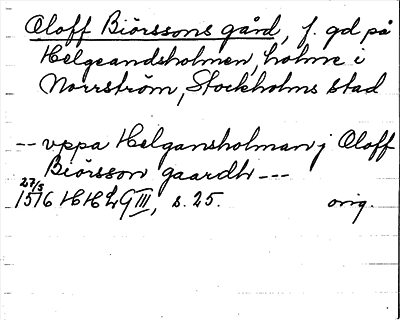 Oloff Biörssons gård, f. gd på
Helgeandsholmen, holme i
Norrström, Stockholms stad
-- vppa Helgansholman j Oloff
Biörsson gaardh ---
27/3
1516 HHLG III, s. 25. orig.